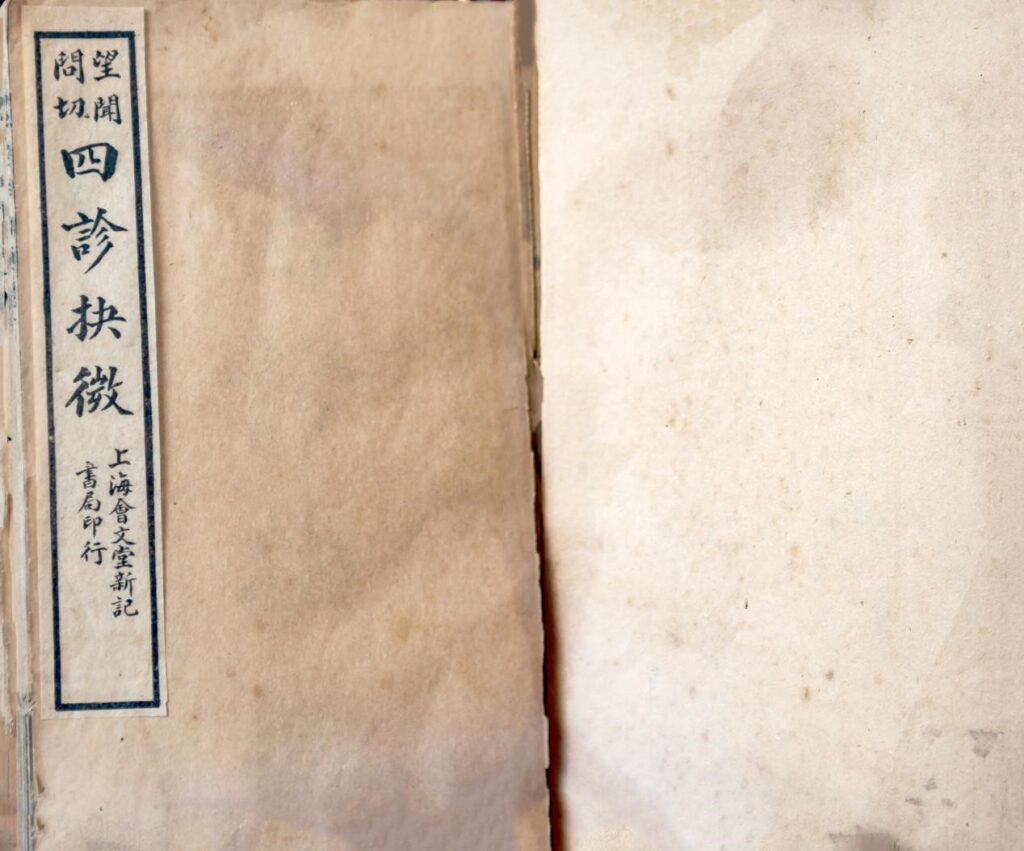 望聞
問切
四診抉微
上海會文堂新記
書局印行